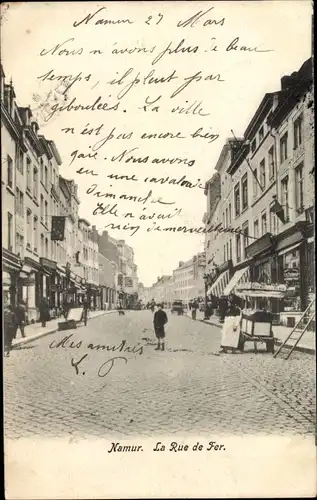 Namur 27 Mars
Nous n'avons plus le beau
temps, il pleut par
giboulées. La ville
n'est pas encore bien
gaie. Nous avons
une cavalcade
dimanche
Elle n'avait
rien de merveilleux
Mes amitiés
Namur. La Rue de Fer.